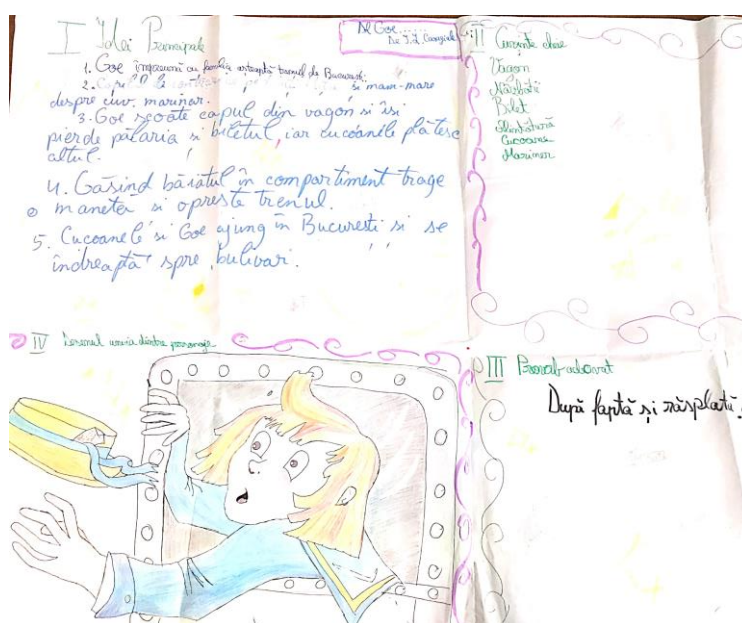 I Idei Principale
Dl Goe......
De I.L. Caragiale
1. Goe împreună cu familia așteaptă trenul de București.
2. și mam-mare
despre cuv. marinar.
3. Goe scoate capul din vagon si isi
pierde pălaria si biletul, iar cucoanele plătesc
altul.
4. Găsind băiatul în compartiment trage
maneta si opreste trenul.
5. Cucoanele si Goe ajung în Bucuresti si se
îndreaptă spre bulivar.
II Cuvinte cheie
Vagon
Bilet
Cucoana
Marinar
IV Desenul unuia dintre personaje
III Proverb adecvat
După faptă și răsplată.